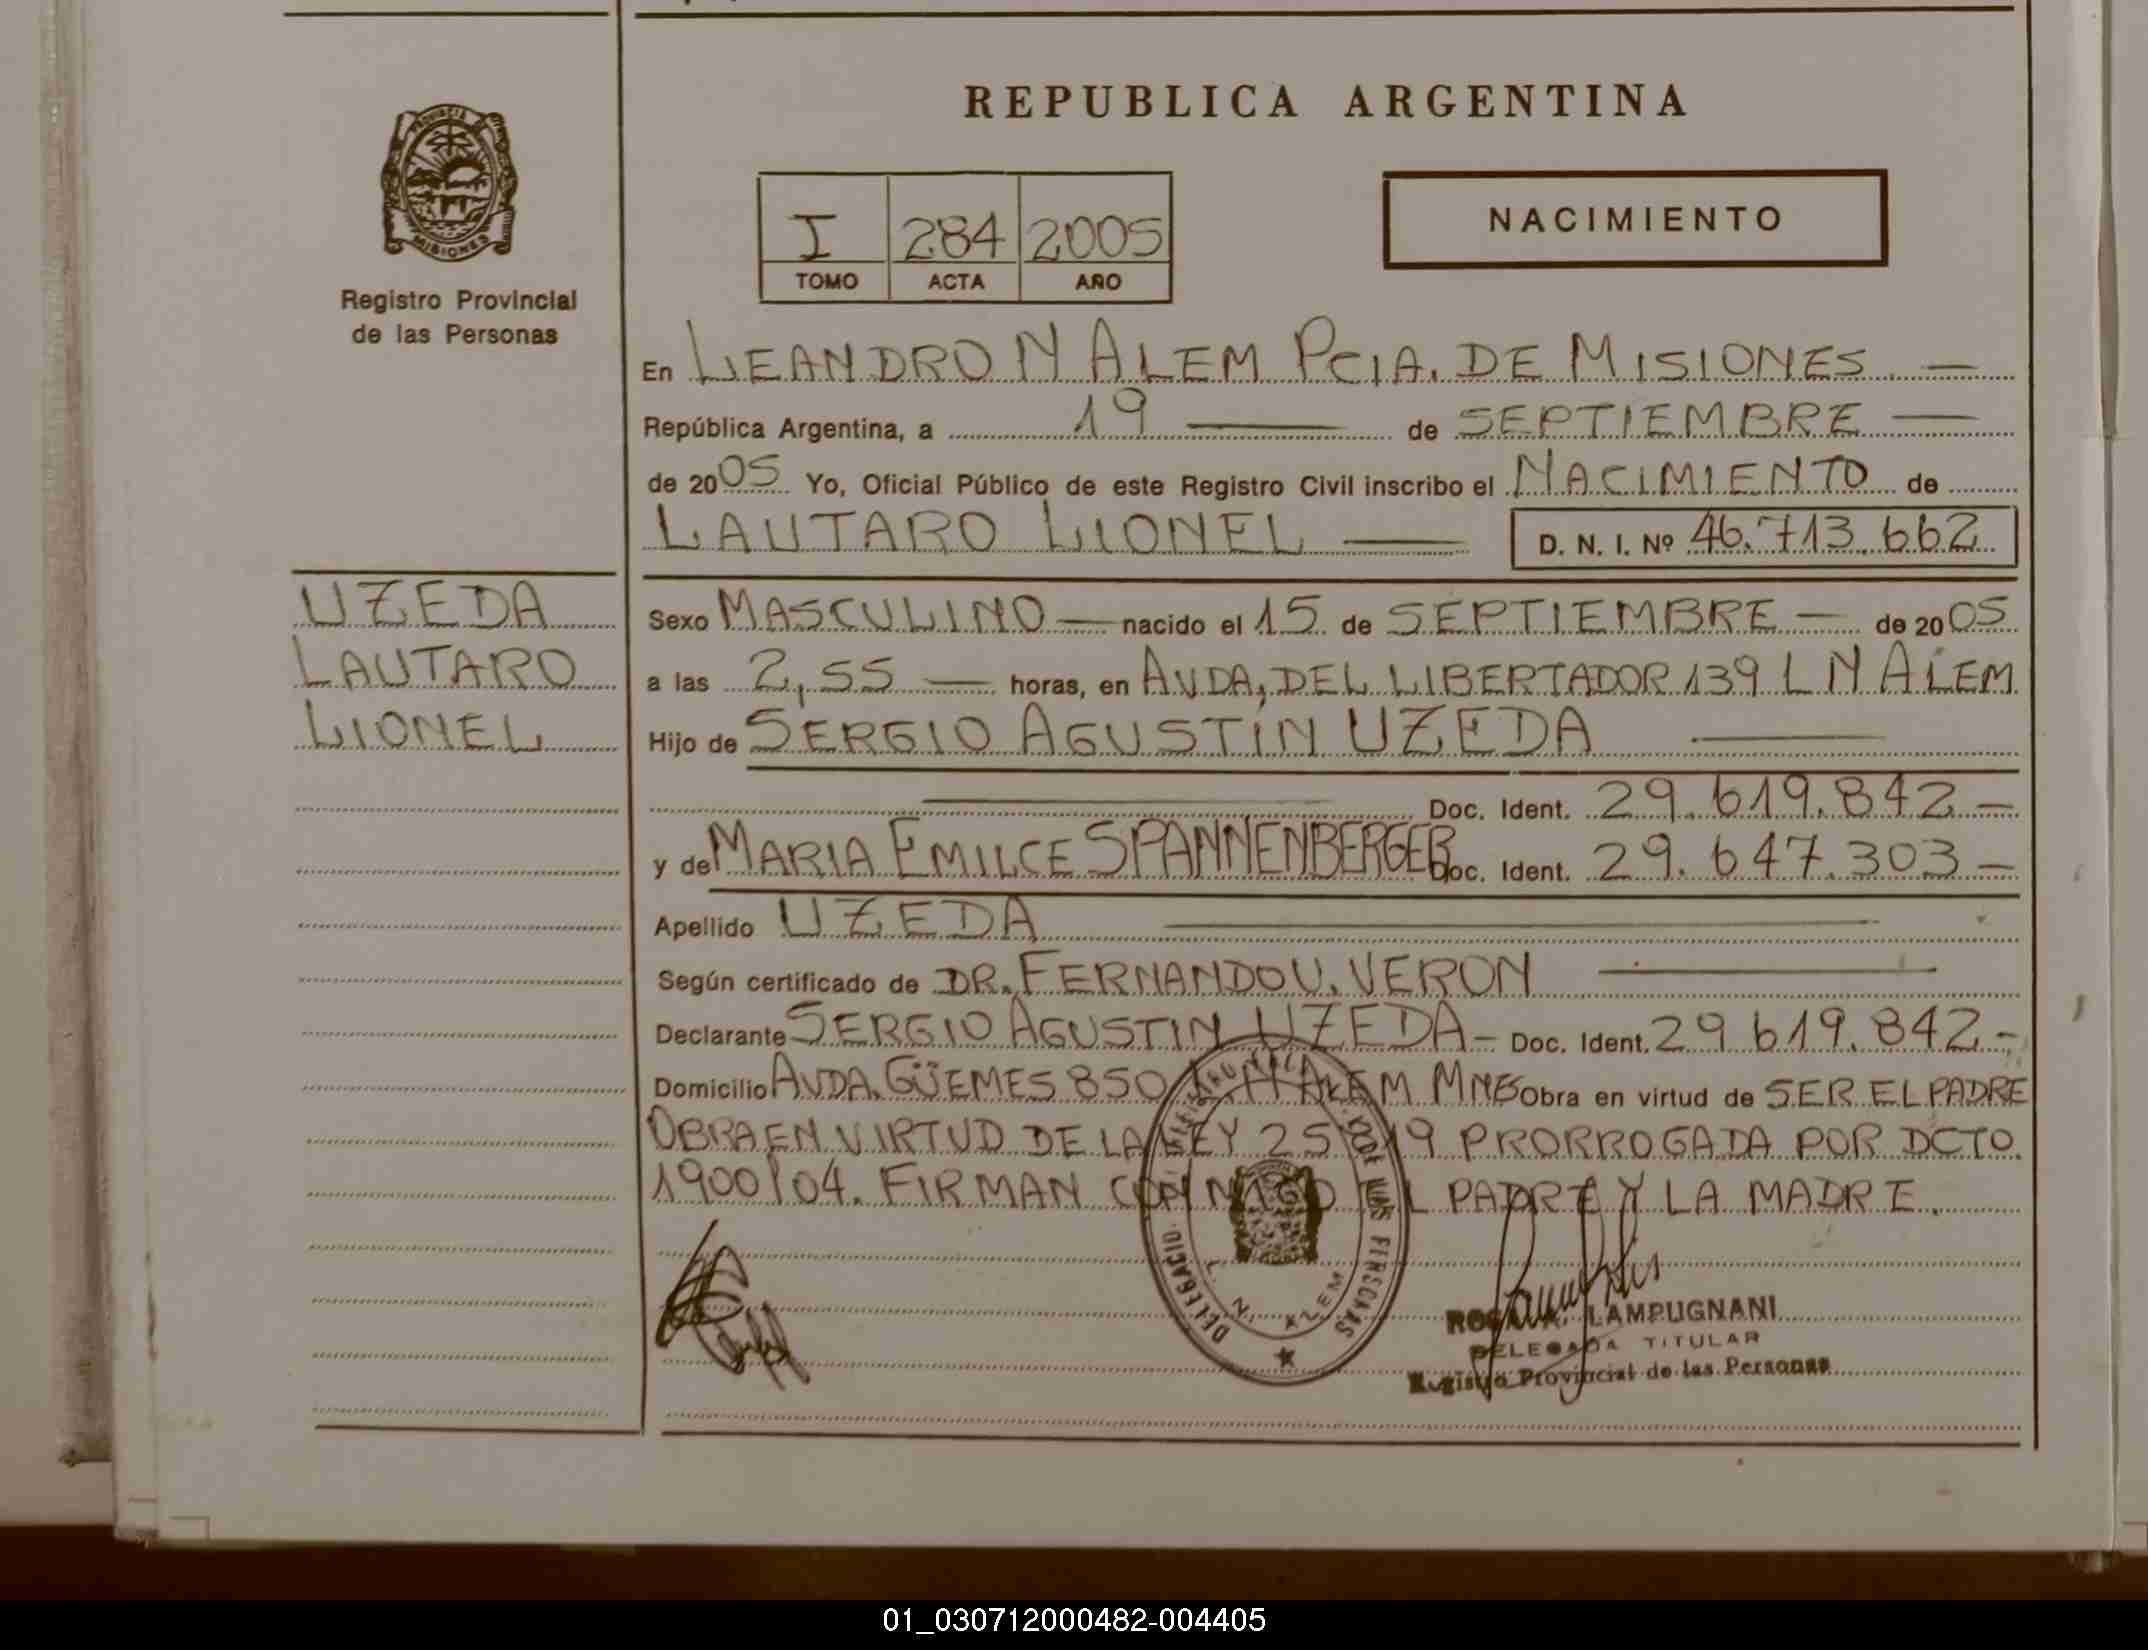 REPUBLICA ARGENTINA
PROVINCIA DE
MISIONES
Registro Provincial
de las Personas
I 284 2005
TOMO ACTA AÑO
NACIMIENTO
En LEANDRO N ALEM PCIA. DE MISIONES. —
República Argentina, a 19 — de SEPTIEMBRE —
de 2005 Yo, Oficial Público de este Registro Civil inscribo el NACIMIENTO de
LAUTARO LIONEL — D. N. I. Nº 46.713.662
UZEDA
LAUTARO
LIONEL
Sexo MASCULINO — nacido el 15 de SEPTIEMBRE — de 2005
a las 2,55 — horas, en AVDA, DEL LIBERTADOR 139 L N ALEM
Hijo de SERGIO AGUSTIN UZEDA —
— Doc. Ident. 29.619.842 —
y de MARIA EMILCE SPANNENBERGER Doc. Ident. 29.647.303 —
Apellido UZEDA —
Según certificado de DR. FERNANDO V. VERON —
Declarante SERGIO AGUSTIN UZEDA — Doc. Ident. 29.619.842 -
Domicilio AVDA. GÜEMES 850 ALEM MNES Obra en virtud de SER EL PADRE
OBRA EN VIRTUD DE LA LEY 25 819 PRORROGADA POR DCTO.
1900/04. FIRMAN CONMIGO EL PADRE Y LA MADRE.
DELEGACIO
DE LAS PERSONAS
L. N. ALEM
LAMPUGNANI
DELEGADA TITULAR
Registro Provincial de las Personas
01_030712000482-004405